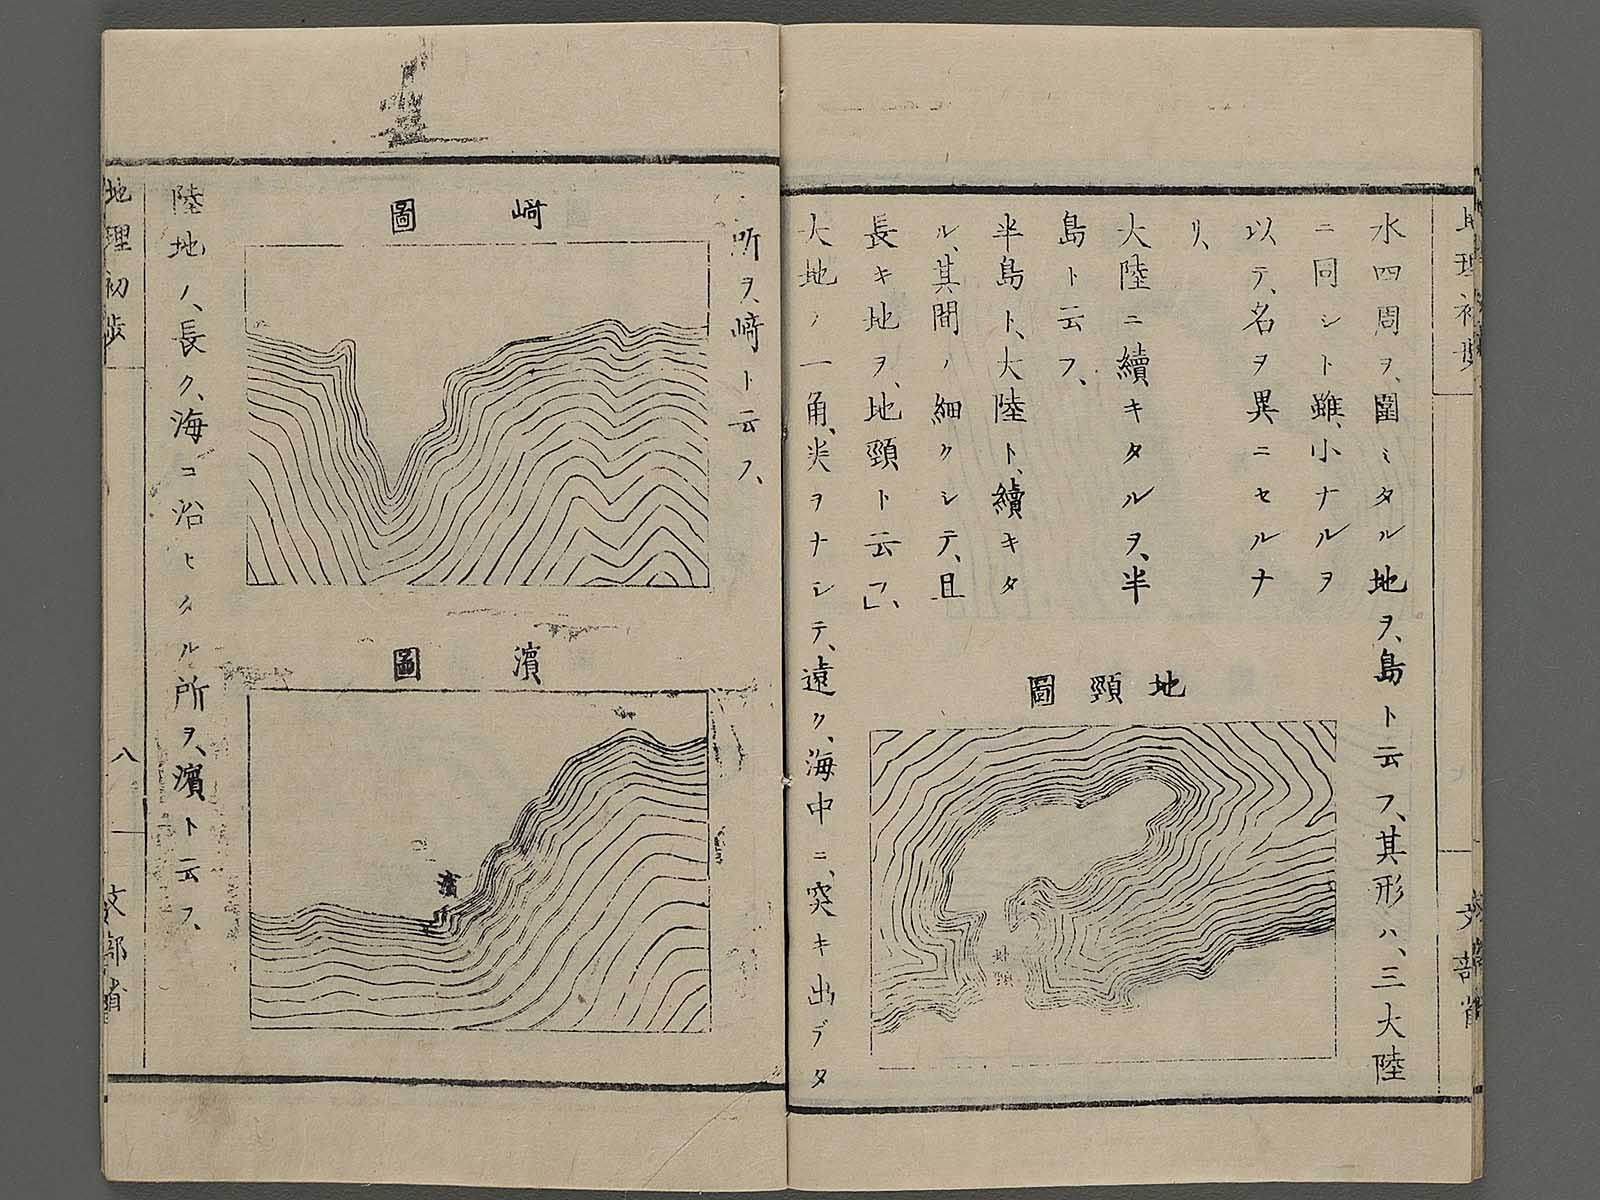 水四周ヲ、圍ミタル地ヲ、島ト云フ、其形ハ、三大陸
ニ同シト雖、小ナルヲ
以テ、名ヲ異ニセルナ
リ、
大陸ニ續キタルヲ、半
島ト云フ、
半島ト、大陸ト、續キタ
ル、其間ノ細クシテ、且
長キ地ヲ、地頸ト云フ、
地頸圖
地頸
大地ノ一角、尖ヲナシテ、遠ク、海中ニ、突キ出デタ
文部省
所ヲ、﨑ト云フ、
﨑圖
濱圖
濱
陸地ノ、長ク、海ニ沿ヒタル所ヲ、濱ト云フ、
地理初歩
八
文部省